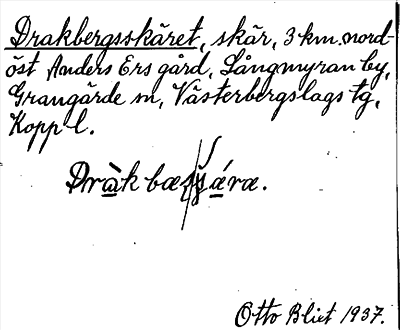 Drakbergsskäret, skär, 3 km. nord-
öst Anders Ers gård, Långmyran by,
Grangärde sn, Västerbergslags tg,
Kopp l.
Otto Blixt 1937.